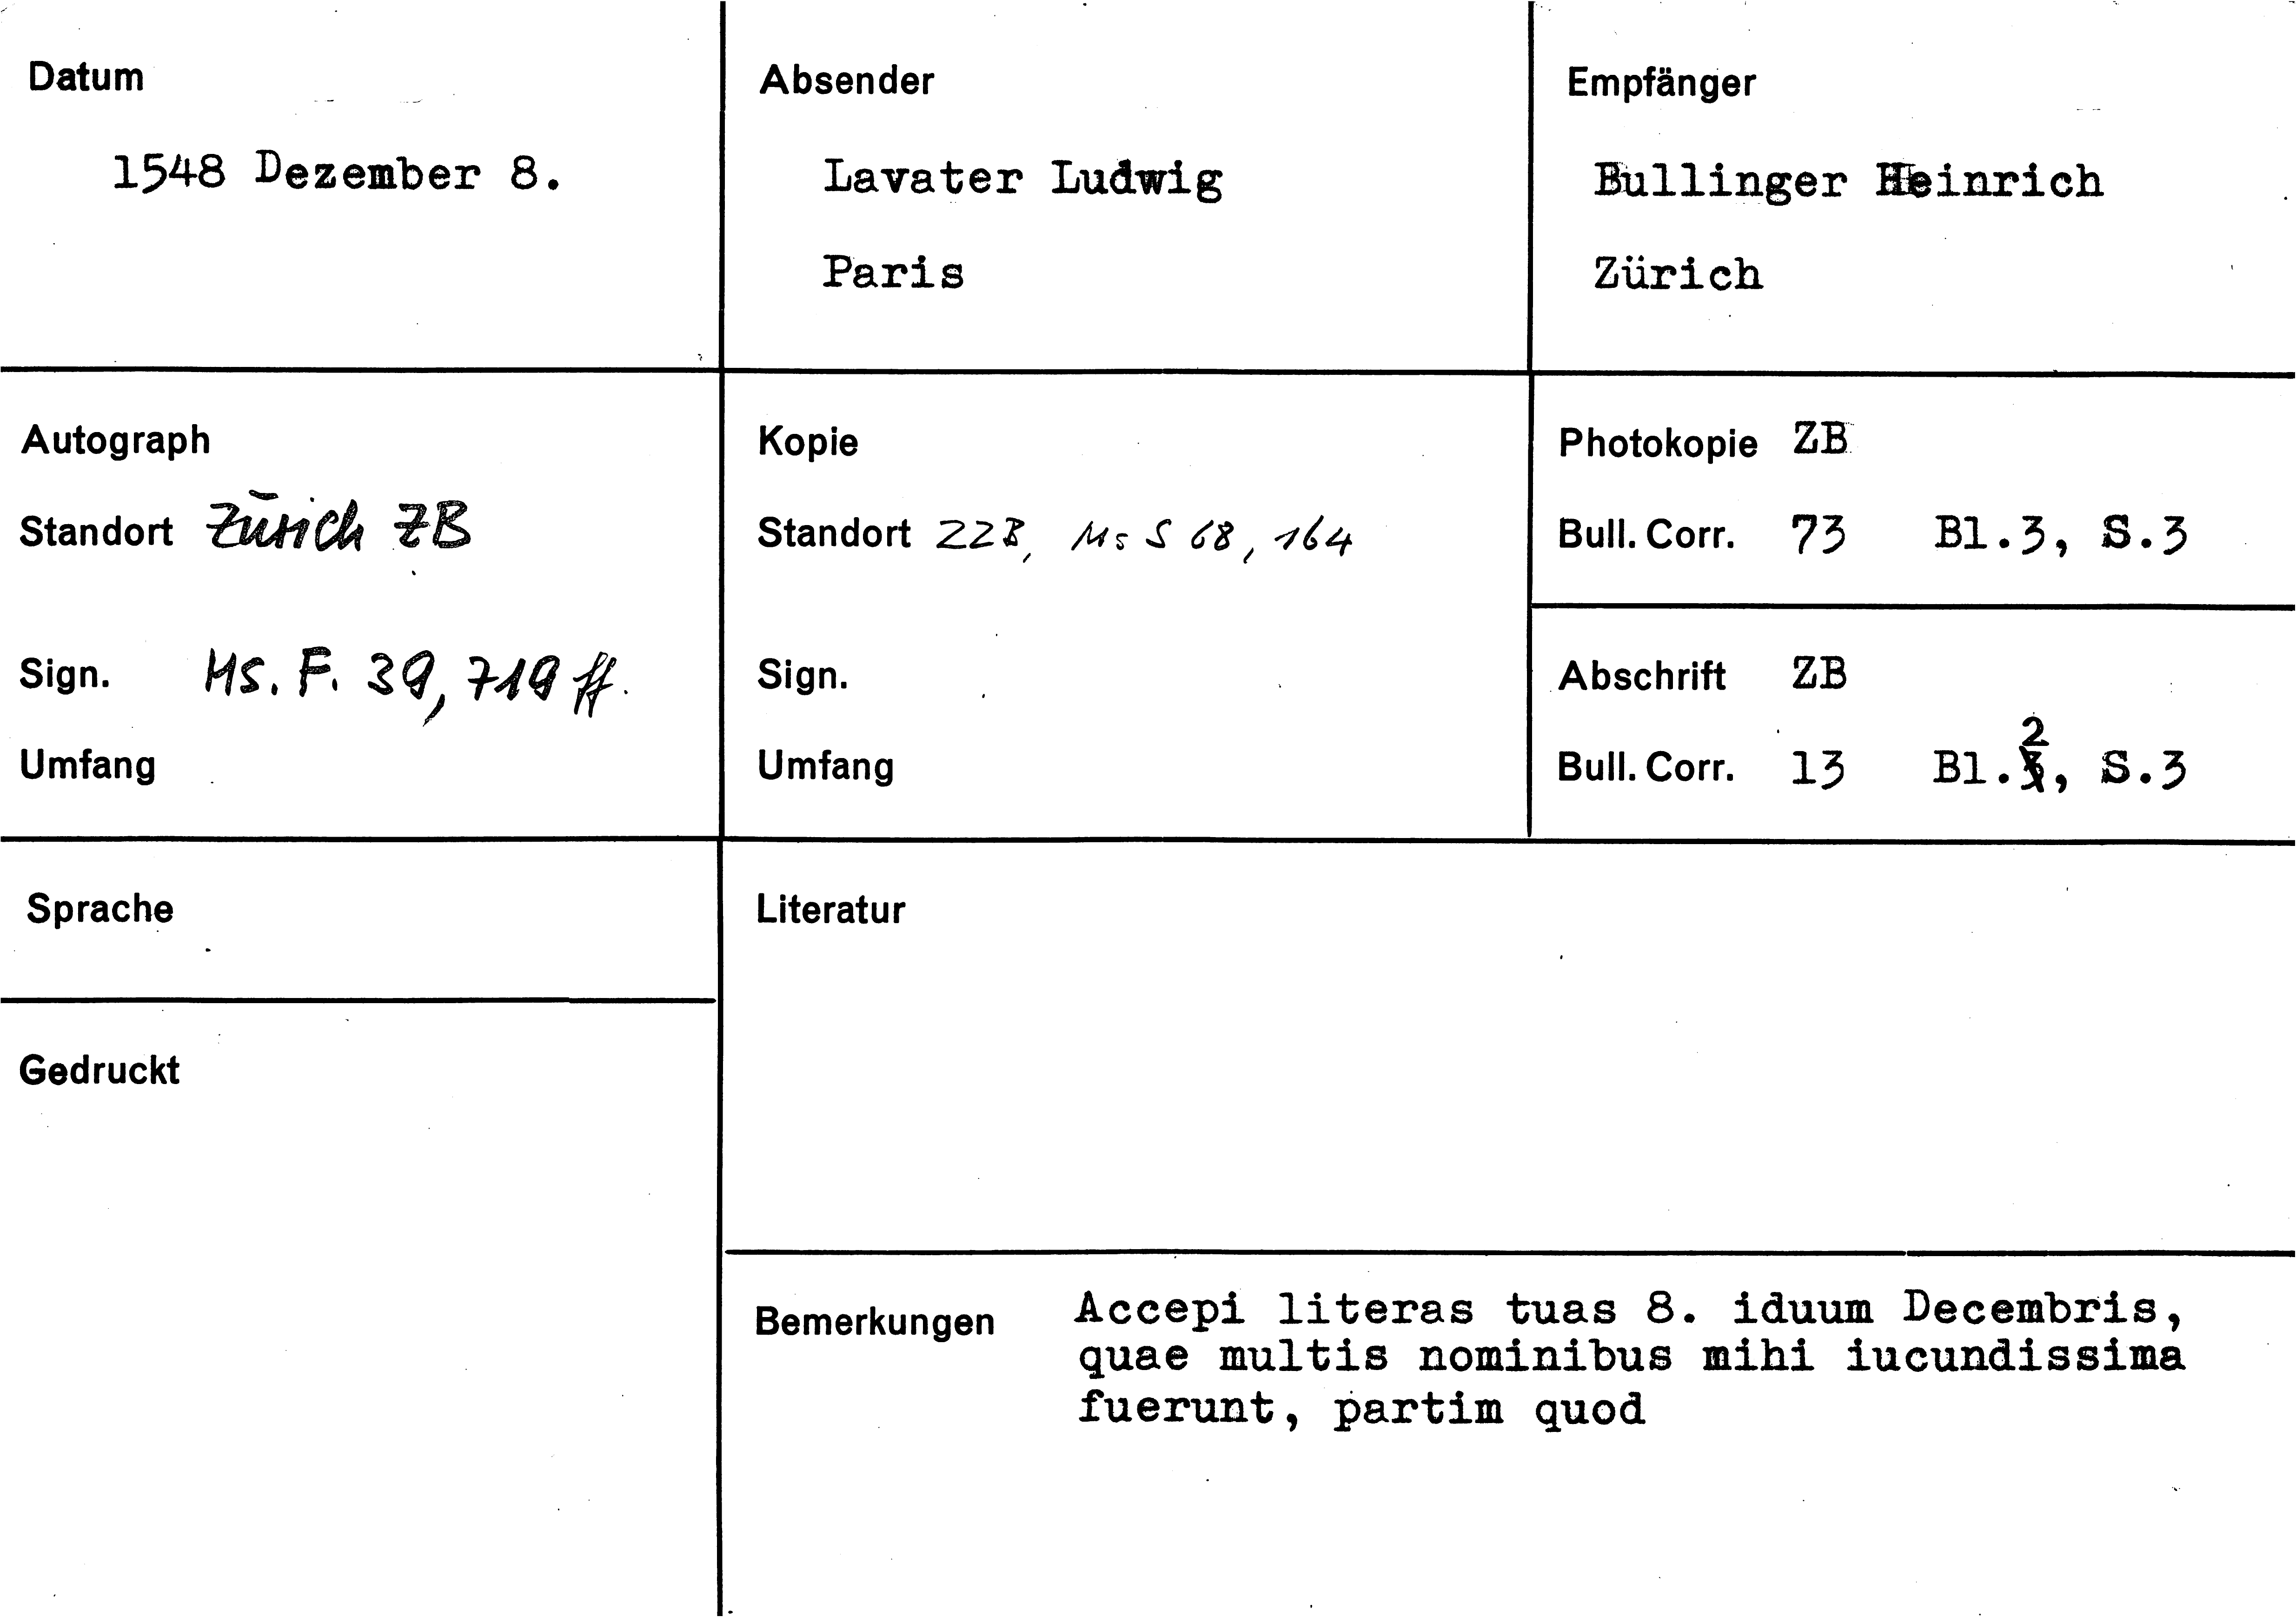 Datum
1548 Dezember 8.
Absender
Lavater Ludwig
Paris
Empfänger
Bullinger Heinrich
Zürich
Autograph
Standort Zürich ZB
Sign. Ms. F. 39, 719 ff.
Umfang
Kopie
Standort ZZB, Ms S 68, 164
Sign.
Umfang
Photokopie ZB
Bull. Corr. 73 Bl.3, S.3
Abschrift ZB
Bull. Corr. 13 Bl.2, S.3
Sprache
Gedruckt
Literatur
Bemerkungen Accepi literas tuas 8. iduum Decembris,
quae multis nominibus mihi iucundissima
fuerunt, partim quod